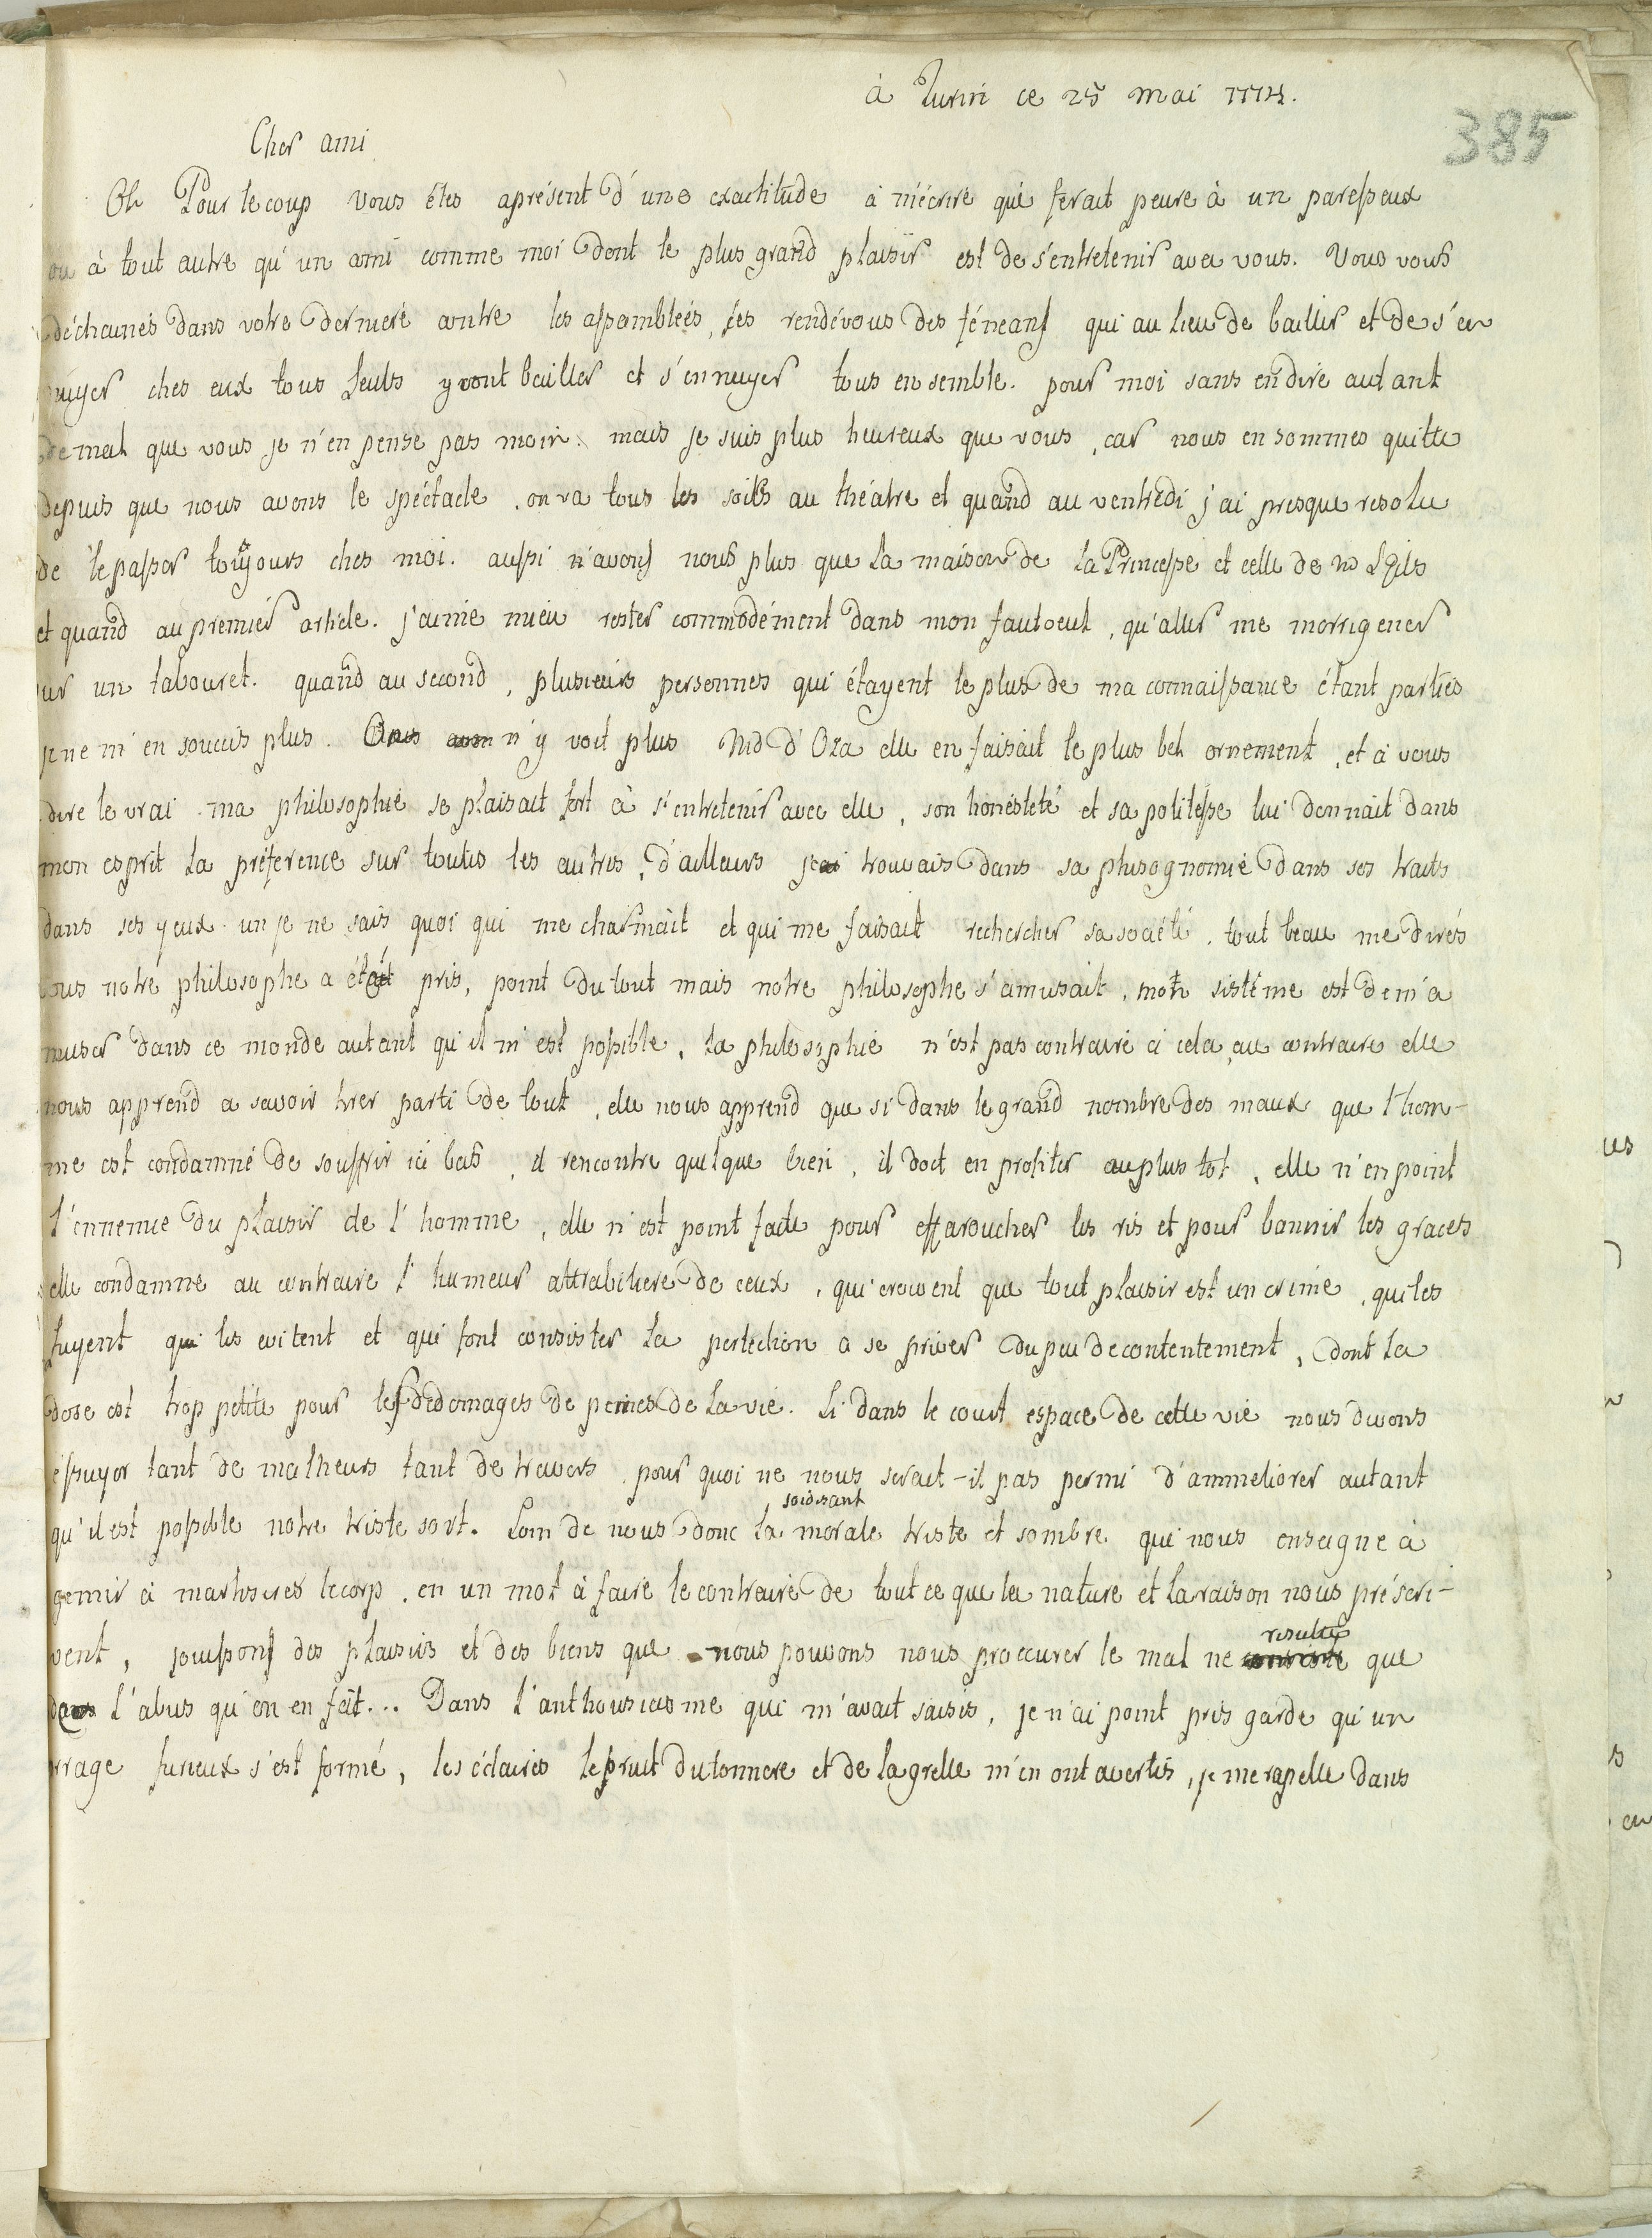 à Turin ce 25 mai 1774.
385
Cher ami
Oh Pour le coup vous êtes aprésent d'une exactitude à m'écrire qui ferait peure à un paresseux
ou à tout autre qu'un ami comme moi dont le plus grand plaisir est de s'entretenir avec vous. Vous vous
déchainés dans votre derniere contre les assamblées, les rendévous des féneans qui au lieu de bailler et de s'en
nuyer ches eux tous seuls y vont bailler et s'ennuyer tous ensemble. pour moi sans en dire autant
de mal que vous je n'en pense pas moin. mais je suis plus heureux que vous, car nous en sommes quitte
depuis que nous avons le spéctacle. on va tous les soirs au théatre et quand au ventredi j'ai presque resolu
de le passer toujours ches moi. aussi n'avons nous plus que la maison de la Princesse et celle de
et quand au premier article. j'aime mieu rester commodément dans mon fautoeul, qu'aller me morrigener
sur un tabouret. quand au second, plusieurs personnes qui étayent le plus de ma connaissance étant parties
je ne m'en soucis plus. n'y voit plus Md d'Oza elle en faisait le plus bel ornement, et à vous
dire le vrai ma philosophie se plaisait fort à s'entretenir avec elle, son honésteté et sa politesse lui donnait dans
mon esprit la préference sur toutes les autres, d'ailleurs je trouvais dans sa phisognomie dans ses traits
dans ses yeux un je ne sais quoi qui me charmait et qui me faisait rechercher sa société. tout beau me dirés
vous notre philosophe a été pris, point du tout mais notre philosophe s'amusait. mon sistéme est de m'a
muser dans ce monde autant qu'il m'est possible, la philosophie n'est pas contraire à cela, au contraire elle
nous apprend a savoir tirer parti de tout, elle nous apprend que si dans le grand nombre des maux que l'hom-
me est condamné de souffrir ici bas, il rencontre quelque bien, il doit en profiter au plus tot, elle n'en point
l'ennemie du plaisir de l'homme, elle n'est point faite pour effaroucher les ris et pour bannir les graces
elle condamne au contraire l'humeur attrabiliere de ceux, qui croivent que tout plaisir est un crime, qui les
fuyent qui les evitent et qui font consister la perfection a se priver du peu de contentement, dont la
dose est trop petite pour les dedomages de peines de la vie. Si dans le court espace de cette vie nous divons
éssuyer tant de malheurs tant de travers pour quoi ne nous serait-il pas permi d'ammeliorer autant
qu'il est possible notre triste sort. Loin de nous donc la soidisant morale triste et sombre qui nous enseigne à
gemir à martirirer le corp, en un mot à faire le contraire de tout ce que la nature et la raison nous préscri-
vent, jouissons des plaisirs et des biens que nous pouvons nous proccurer le mal ne resulte que
dans l'abus qu'on en fait... Dans l'anthousiasme qui m'avait saisis, je n'ai point pris garde qu'un
orrage furieux s'est formé, les éclaires le pruit du tonnere et de la grelle m'en ont avertis, je me rapelle dans